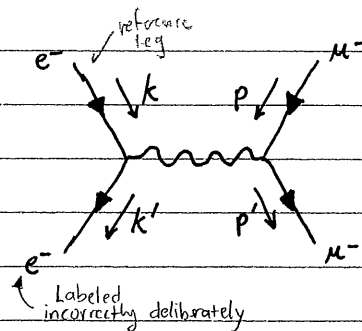 reference
leg
e⁻ μ⁻
k p
k' p'
e⁻ μ⁻
Labeled
incorrectly deliberately